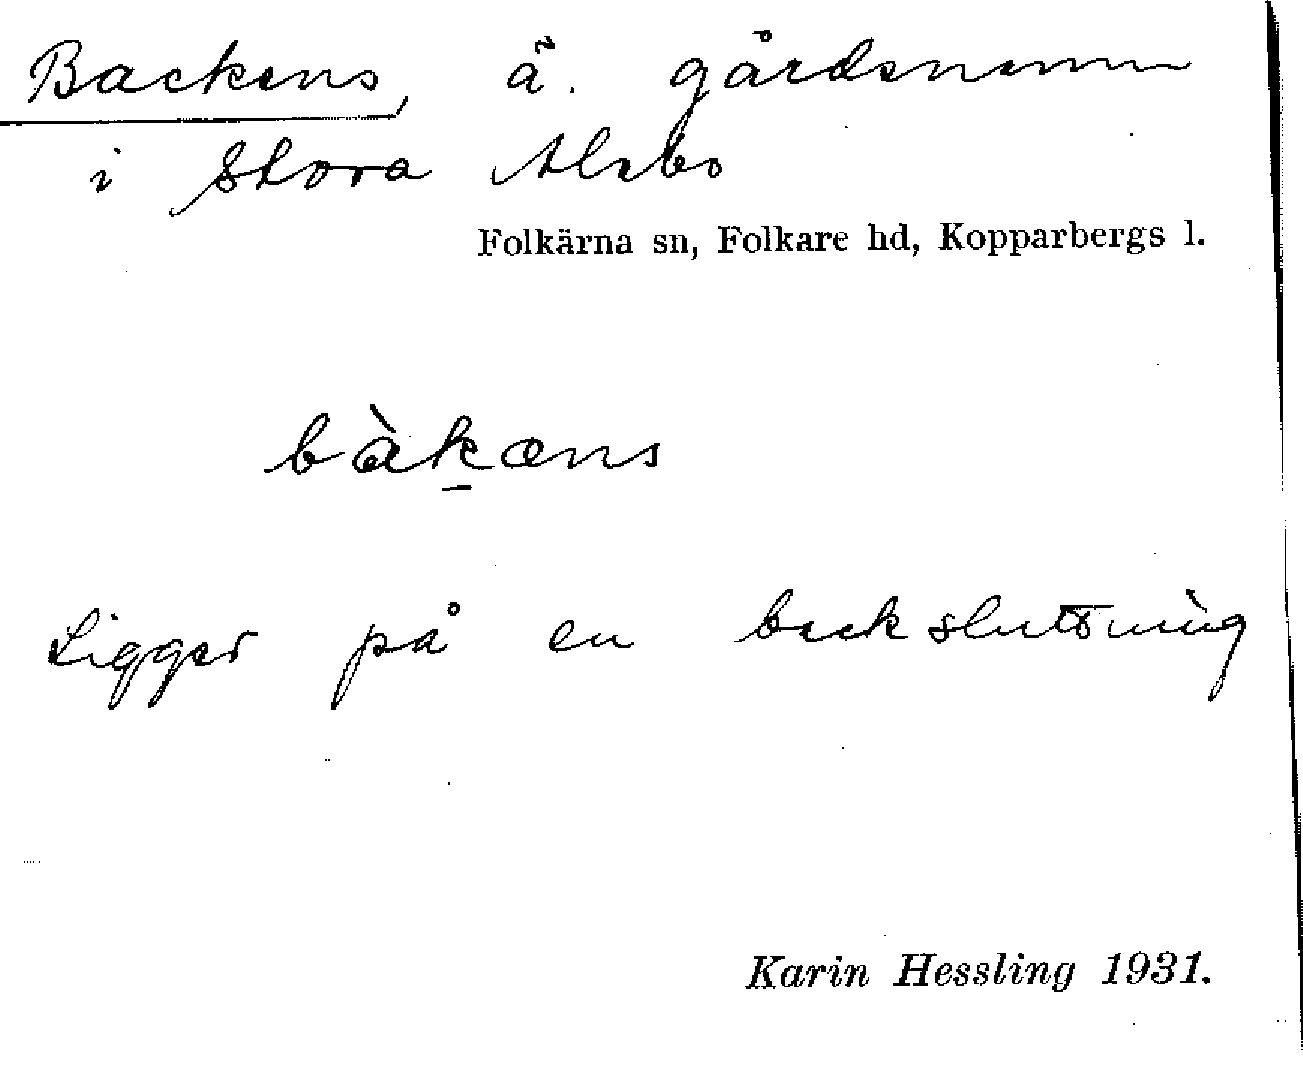 Backens, ä. gårdsnamn
i Stora Alsbo
Folkärna sn, Folkare hd, Kopparbergs l.
bàkæns
Ligger på en backsluttning
Karin Hessling 1931.